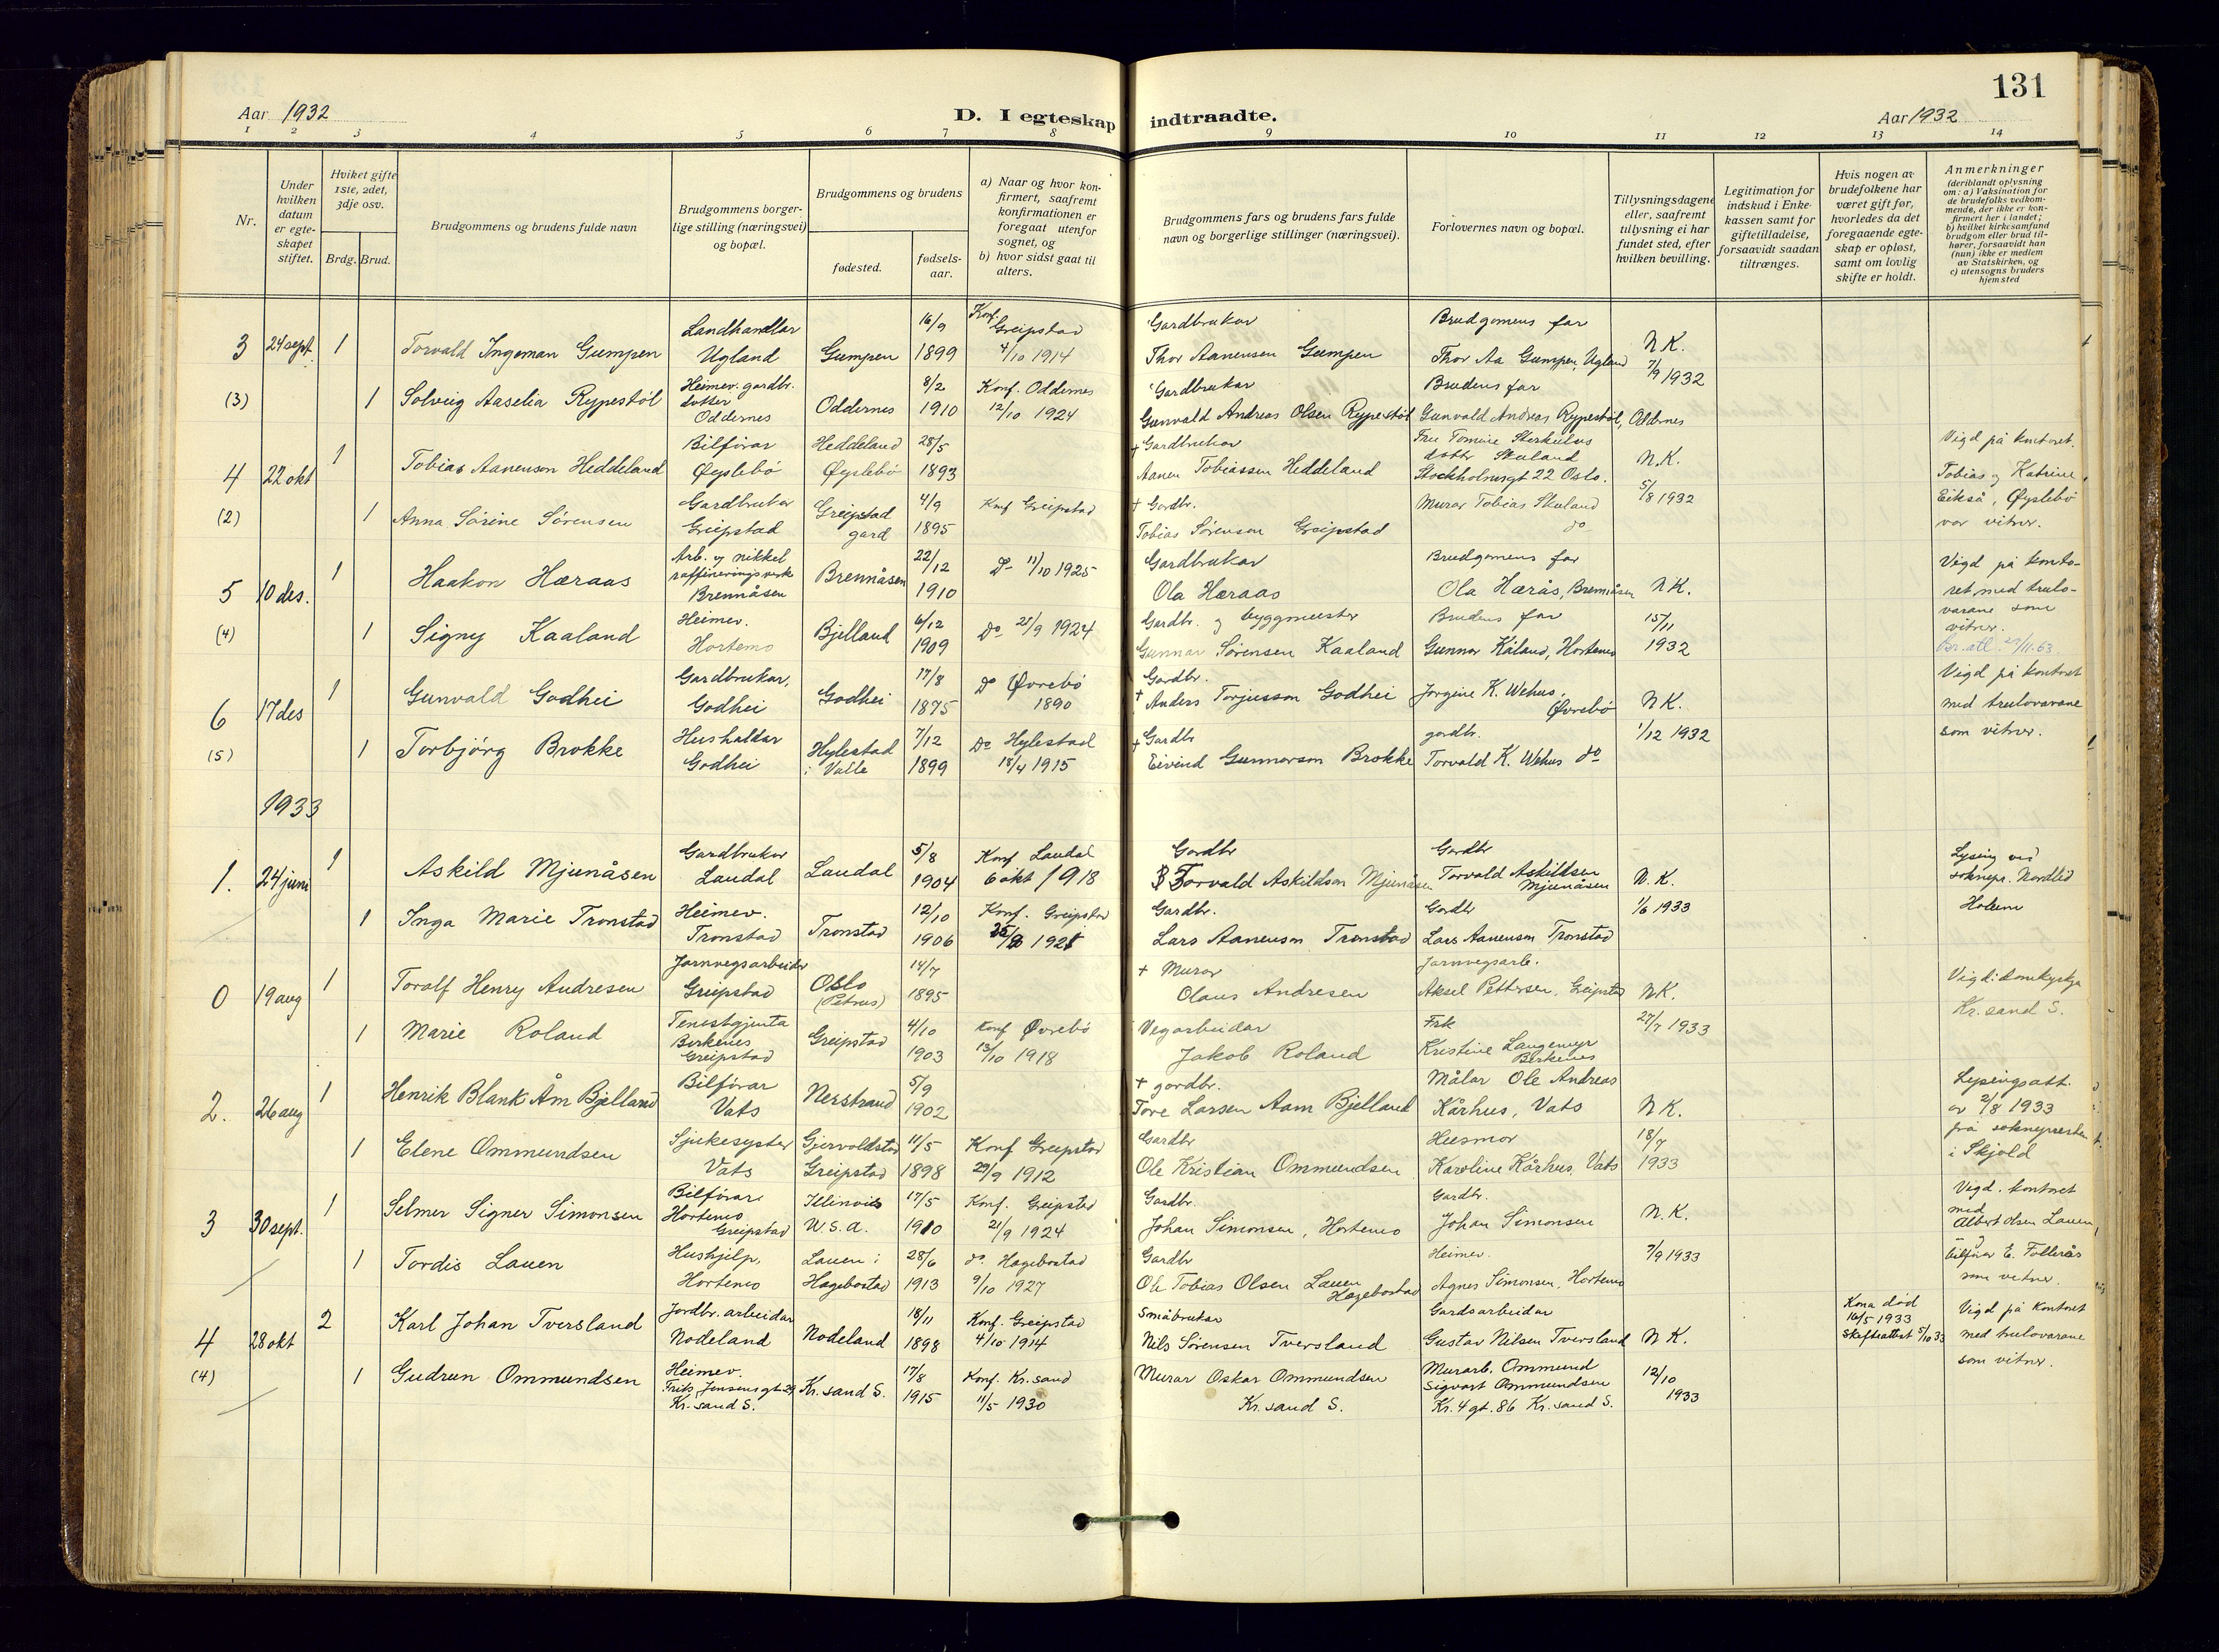 131
Aar 1932
D. I egteskap indtraadte.
Aar 1932
1 2 3 4 5 6 7 8 9 10 11 12 13 14
Nr.
Under hvilken datum er egte-skapet stiftet.
Hviket gifte 1ste, 2det, 3dje osv.
Brdg. Brud.
Brudgommens og brudens fulde navn
Brudgommens borger-lige stilling (næringsvei) og bopæl.
Brudgommens og brudens
fødested.
fødsels-aar.
a) Naar og hvor kon-firmert, saafremt konfirmationen er foregaat utenfor sognet, og
b) hvor sidst gaat til alters.
Brudgommens fars og brudens fars fulde navn og borgerlige stillinger (næringsvei).
Forlovernes navn og bopæl.
Tillysningsdagene eller, saafremt tillysning ei har fundet sted, efter hvilken bevilling.
Legitimation for indskud i Enke-kassen samt for giftetilladelse, forsaavidt saadan tiltrænges.
Hvis nogen av brudefolkene har været gift før, hvorledes da det foregaaende egte-skap er opløst, samt om lovlig skifte er holdt.
Anmerkninger
(deriblandt oplysning om: a) Vaksination for de brudefolks vedkom-mende, der ikke er kon-firmert her i landet; b) hvilket kirkesamfund brudgom eller brud til-hører, forsaavidt han (hun) ikke er medlem av Statskirken, og c) utensogns bruders hjemsted
3 24 sept. 1 Torvald Ingeman Gumpen Landhandlar Ugland Gumpen 16/9 1899 Konf. Greipstad 4/10 1914 Gardbrukar Thor Aanensen Gumpen Brudgomens far Thor Aa Gumpen, Ugland N.K. 7/9 1932
(3) 1 Solveig Aaselia Rypestöl Heimev. gardbr. dotter Oddernes Oddernes 8/2 1910 Konf. Oddernes 12/10 1924 Gardbrukar Gunvald Andreas Olsen Rypestöl Brudens far Gunvald Andreas Rypestöl, Oddernes
4 22 okt 1 Tobias Aanenson Heddeland Bilförar Øyslebö Heddeland Øyslebö 28/5 1893 + Gardbrukar Aanen Tobiassen Heddeland Fru Tomine Sterkelus dotter Skuland Stockholmsgt 22 Oslo. N.K. 5/8 1932 Vigd på kontoret. Tobias og Katrine Eikså, Øyslebö var vitner.
(2) 1 Anna Sörine Sörensen Gardbrukar Greipstad Greipstad gard 4/9 1895 Konf Greipstad + Gardbr. Tobias Sörenson Greipstad Murar Tobias Skuland do
5 10 des. 1 Haakon Hæraas Arb. og nikkel raffineringsverk Brennåsen Brennåsen 22/12 1910 Do 11/10 1925 Gardbrukar Ola Hæraas Brudgomens far Ola Hærås, Brennåsen N.K. Vigd på konto-ret med trulo-varane som vitner.
(4) 1 Signy Kaaland Heimev. Hortemo Bjelland 6/12 1909 Do 21/9 1924 Gardbr. og byggmeister Gunnar Sörensen Kaaland Brudens far Gunnar Kåland, Hortemo 15/11 1932 Br. att. 29/11.63.
6 17 des 1 Gunvald Godhei Gardbrukar, Godhei Godhei 17/8 1875 Do Øvrebö 1890 Gardbr. + Anders Torjusson Godhei Jorgine K. Wehus, Øvrebö N.K. Vigd på kontoret med trulovarane som vitner.
(5) 1 Torbjörg Brokke Hushaldar Godhei Hylestad i Valle 7/12 1899 Do Hylestad 18/4 1915 + Gardbr Eivind Gunnarson Brokke gardbr. Torvald K. Wehus do 1/12 1932
1933
1. 24 juni 1 Askild Mjunåsen Gardbrukar Laudal Laudal 5/8 1904 Konf Laudal 6 okt 1918 Gardbr Torvald Askildson Mjunåsen Gardbr Torvald Askildsen Mjunåsen N.K. 1/6 1933 Lysing ved soknepr. Nordlid Holum
1 Inga Marie Tronstad Heimev. Tronstad Tronstad 12/10 1906 Konf. Greipstad 1921 Gardbr. Lars Aanenson Tronstad Gardbr Lars Aanenson Tronstad
0 19 aug 1 Toralf Henry Andresen Jarnvegsarbeider Greipstad Oslo (Petrus) 14/7 1895 + Murar Olaus Andresen Jarnvegsarb. Aksel Pettersen, Greipstad N.K. 27/7 1933 Vigd i domkyrkja Kr.sand S.
1 Marie Roland Tenestgjenta Birkenes Greipstad Greipstad 4/10 1903 Konf Øvrebö 13/10 1918 Vegarbeidar Jakob Roland Frk Kristine Langemyr Birkenes
2. 26 aug 1 Henrik Blank Åm Bjelland Bilförar Vats Nerstrand 5/9 1902 + gardbr. Tore Larsen Aam Bjelland Målar Ole Andreas Kårhus, Vats N.K. Lysingsatt. av 2/8 1933 frå soknepresten i Skjold
1 Elene Ommundsen Sjukesyster Vats Gjervoldstad Greipstad 11/5 1898 Konf Greipstad 29/9 1912 Gardbr Ole Kristian Ommundsen Husmor Karoline Kårhus, Vats 18/7 1933
3 30 sept. 1 Selmer Signer Simonsen Bilförar Hortemo Greipstad Illinois U.S.A. 17/5 1910 Konf. Greipstad 21/9 1924 Gardbr. Johan Simonsen, Hortemo Gardbr. Johan Simonsen N.K. Vigd. kontoret med Albert Olsen Lauen, og bilförar E. Follerås som vitner.
1 Tordis Lauen Hushjelp, Hortemo Lauen i Hægebostad 28/6 1913 do. Hægebostad 9/10 1927 Gardbr Ole Tobias Olsen Lauen Hægebostad Heimev. Agnes Simonsen, Hortemo 7/9 1933
4 28 okt 2 Karl Johan Tversland Jordbr. arbeidar Nodeland Nodeland 18/11 1898 Konf. Greipstad 4/10 1914 Småbrukar Nils Sörensen Tversland Gardsarbeidar Gustav Nilsen Tversland N.K. Kona död 16/5 1933 Skifteattest 5/10 33 Vigd på kontoret med trulovarane som vitner.
(4) 1 Gudrun Ommundsen Heimev. Frits Jensens gt. 29 Kr.sand S. Kr.sand S. 17/8 1915 Konf. Kr.sand 11/5 1930 Murar Oskar Ommundsen Kr.sand S. Murarb. Ommund Sigvart Ommundsen Kr. 4 gt. 86 Kr.sand S. 12/10 1933